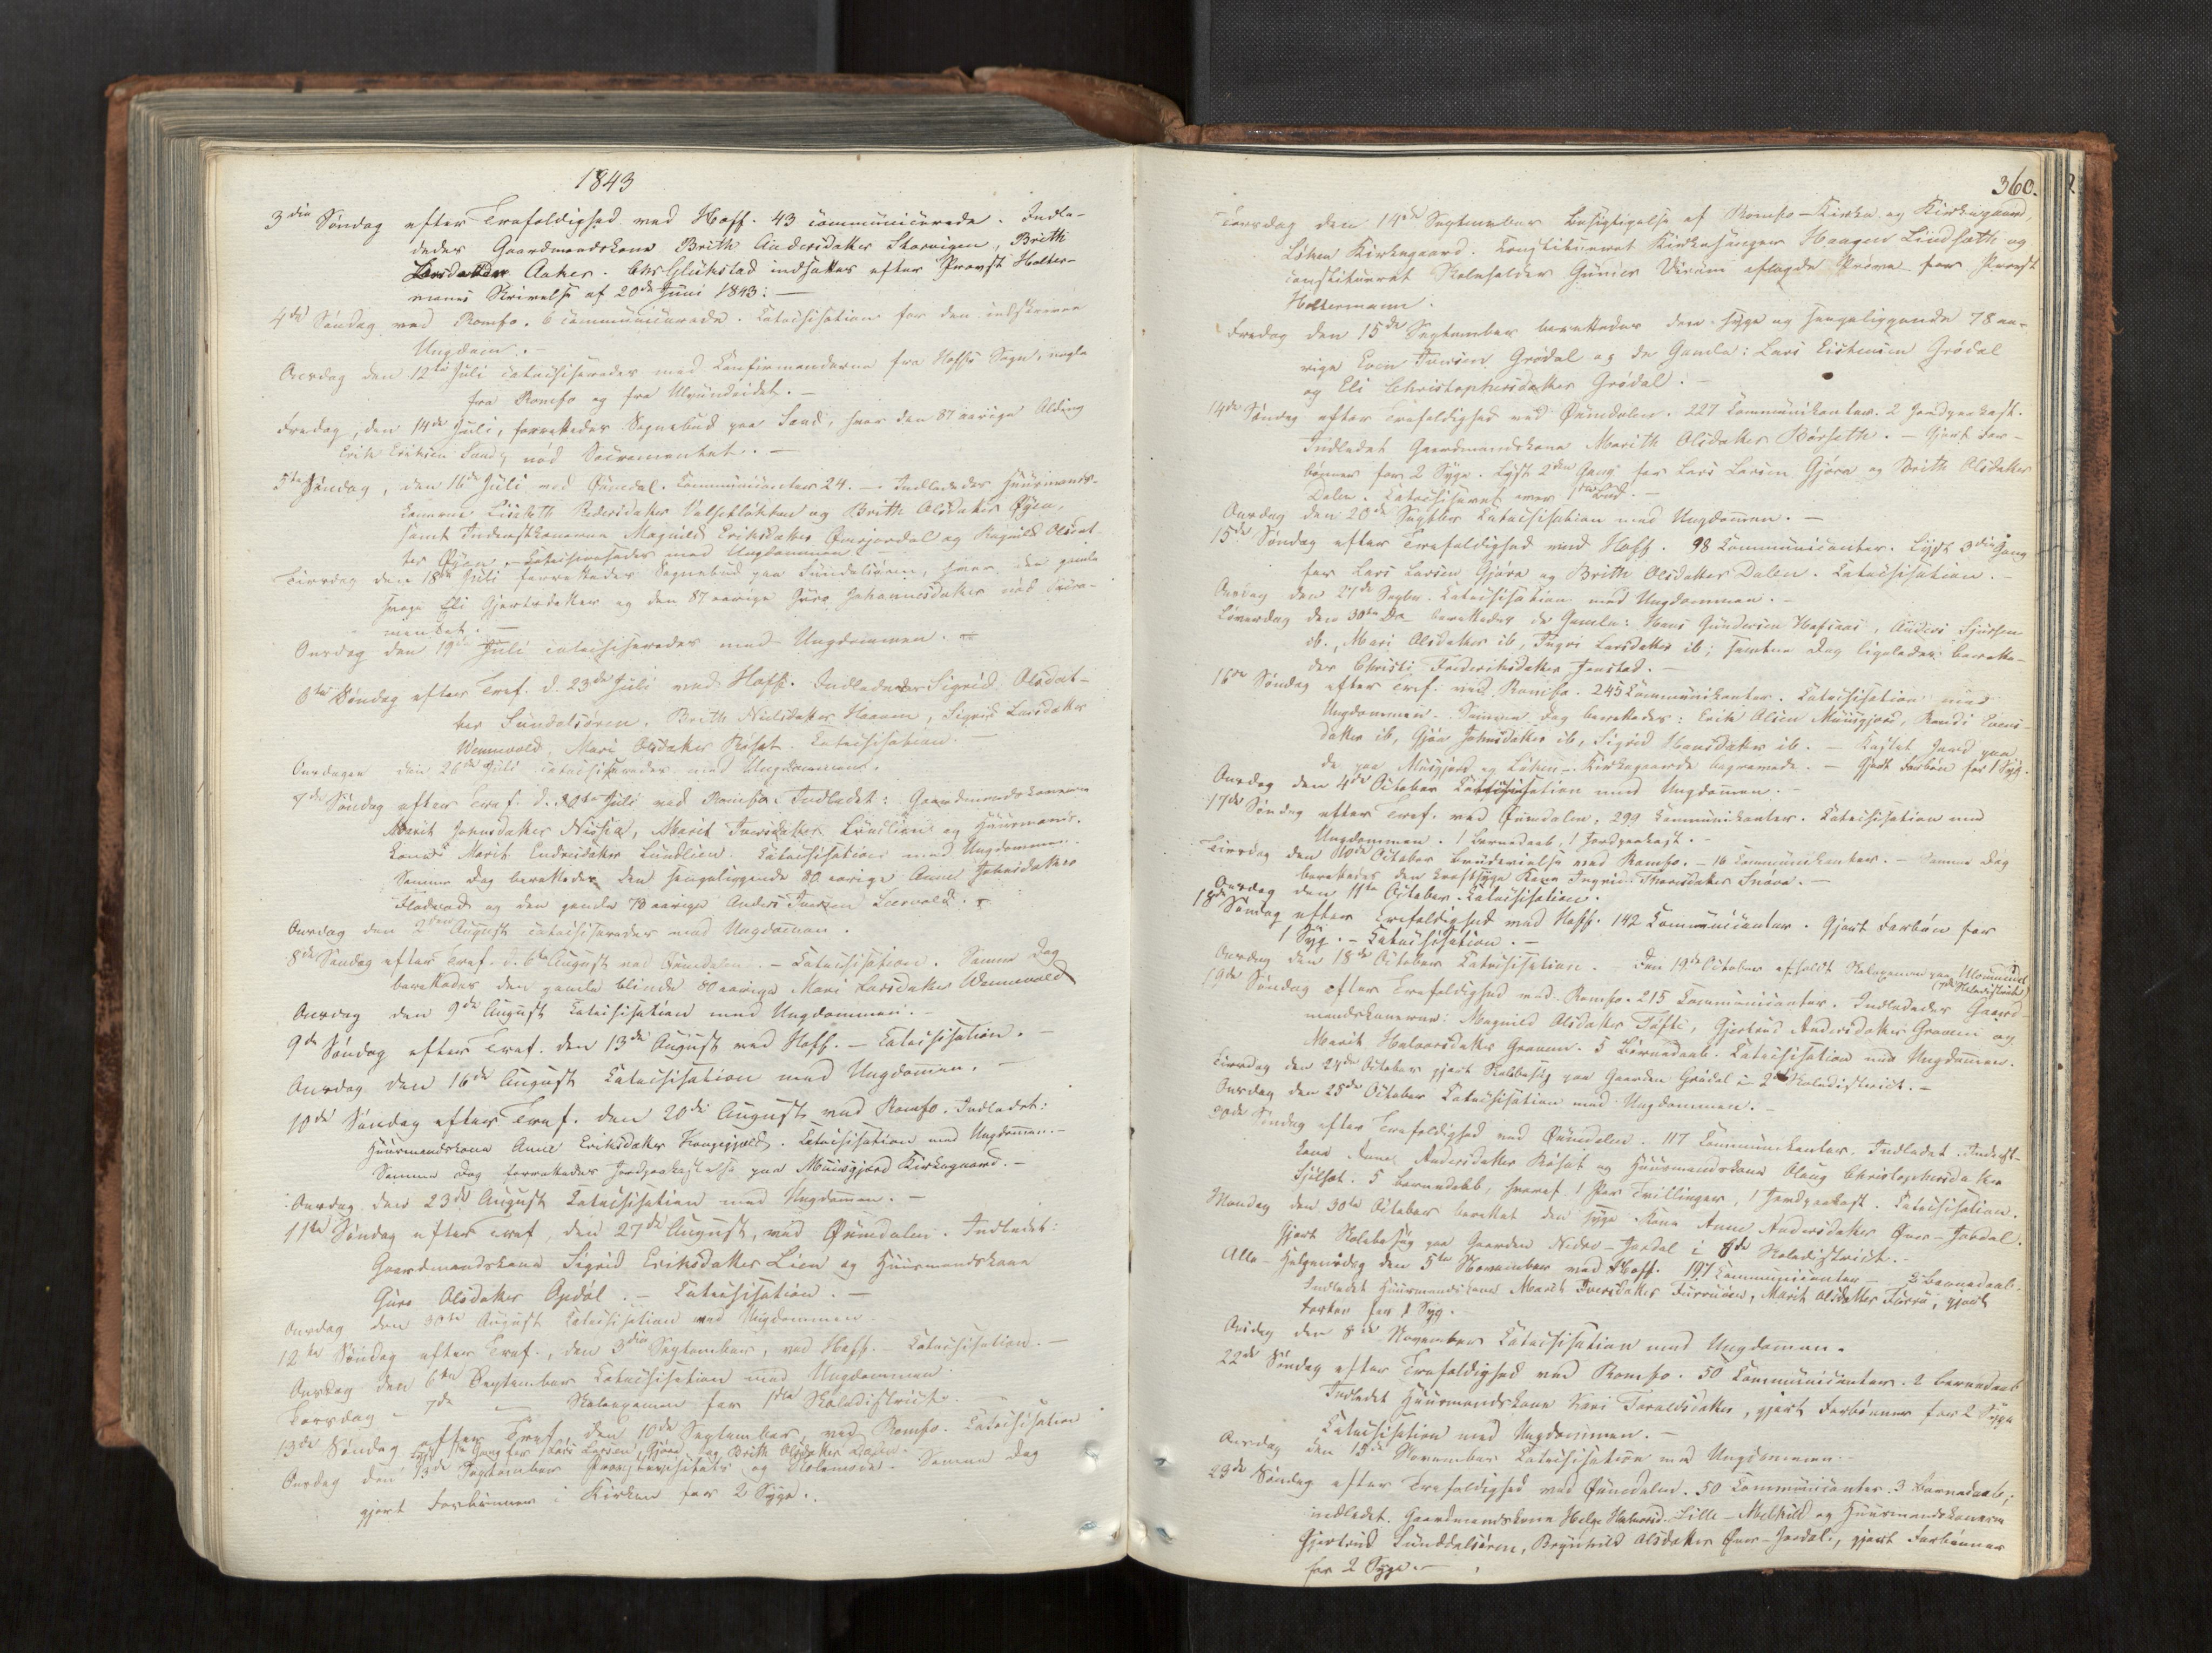 1843
3die Søndag efter Trefoldighed ved Hoff. 43 communicerede. Indle-
dedes Gaardmandskone Brith Andersdatter Storvigen, Brith
Larsdatter Aaker. Chr. Glükstad indsattes efter Provst Holter-
manns Skrivelse af 20de Juni 1843: —
4de Søndag ved Romfo. 6 communicerede. Catechisation for den indskrevne
Ungdom. —
Onsdag den 12te Juli catechiseredes med Confirmanderne fra Hoffs Sogn, nogle
fra Romfo og fra Ulvundeidet. —
Fredag, den 14de Juli, forrettedes Sognebud paa Sand, hvor den 87 aarige Olding
Erik Eriksen Sand nød Sacramentet. —
5te Søndag, den 16de Juli ved Øxendal. Communicanter 24. — Indlededes Huusmands-
konerne Lisebeth Pedersdatter Valsethløkken og Brith Olsdatter Øyen,
samt Inderstkonerne Magnild Eriksdatter Overjordal og Ragnild Olsdat-
ter Øyen. — Catechiseredes med Ungdommen. —
Tirsdag den 18de Juli forrettedes Sognebud paa Sundalsøren, hvor den gamle
svage Eli Gjertsdatter og den 87 aarige Guro Johannesdatter nød Sacra-
mentet. —
Onsdag den 19de Juli catechiseredes med Ungdommen. —
6te Søndag efter Tref. d. 23de Juli ved Hoff. Indlededes Sigrid Olsdat-
ter Sundalsøren. Brith Nielsdatter Haaven, Sigrid Larsdatter
Wennevold, Mari Olsdatter Røset. Catechisation. —
Onsdagen den 26de Juli catechiseredes med Ungdommen.
7de Søndag efter Tref. d. 30te Juli ved Romfo. Indledet: Gaardmandskonerne
Marit Johnsdatter Nisja, Marit Iversdatter Lundlien og Huusmands-
kone Marit Endresdatter Lundlien. Catechisation med Ungdommen.
Samme Dag berettedes den sengeliggende 80 aarige Anne Johnsdatter
og den gamle 78 aarige Anders Iversen
Onsdag den 2den August catechiseredes med Ungdommen.
8de Søndag efter Tref. d. 6te August ved Øxendalen. — Catechisation. Samme Dag
berettedes den gamle blinde 80 aarige Mari Larsdatter Wennevold
Onsdag den 9de August Catechisation med Ungdommen. —
9de Søndag efter Tref. den 13de August ved Hoff. — Catechisation. —
Onsdag den 16de August Catechisation med Ungdommen. —
10de Søndag efter Tref. den 20de August ved Romfo. Indledet:
Huusmandskone Anne Eriksdatter Kongsgjeld. Catechisation med Ungdommen. —
Samme Dag forrettedes Jordpaakastelse paa Muusgjerd Kirkegaard. —
Onsdag den 23de August Catechisation med Ungdommen. —
11te Søndag efter Tref, den 27de August, ved Øxendalen. Indledet:
Gaardmandskone Sigrid Eriksdatter Lien og Huusmandskone
Guro Olsdatter Opdøl. — Catechisation. —
Onsdag den 30te August Catechisation med Ungdommen.
12te Søndag efter Tref., den 3die September, ved Hoff. — Catechisation. —
Onsdag den 6te September Catechisation med Ungdommen.
Torsdag — 7de — Skoleexamen for 1ste Skoledistrict. —
13de Søndag efter Tref., den 10de September, ved Romfo. Catechisation
Lyst 1ste Gang for Lars Larsen Gjøra og Brith Olsdatter Dalen.
Onsdag den 13de September Provstevisitats og Skolemøde. Samme Dag
gjort Forbønner i Kirken for 2 Syge.
360.
Torsdag den 14de September Besigtigelse af Romfo-Kirke og Kirkegaard,
Løken Kirkegaard. Constitueret Kirkesanger Haagen Lindsæth og
constitueret Skoleholder Gunder Virum aflagde Prøve for Provst
Holtermann.
Fredag den 15de September berettedes den syge og sengeliggende 78 aa-
rige Even Iversen Grødal og de Gamle: Lars Eistensen Grødal
og Eli Christophersdatter Grødal. —
14de Søndag efter Trefoldighed ved Øxendalen. 227 Communikanter. 2 Jordpaakast.
Indledet Gaardmandskone Marith Olsdatter Børseth. — Gjort For-
bønner for 2 Syge. Lyst 2den Gang for Lars Larsen Gjøra og Brith Olsdatter
Dalen. Catechiseret over 1ste Bud. —
Onsdag den 20de Septbr Catechisation med Ungdommen. —
15de Søndag efter Trefoldighed ved Hoff. 98 Communicanter. Lyst 3die Gang
for Lars Larsen Gjøra og Brith Olsdatter Dalen. Catechisation. —
Onsdag den 27de Septbr. Catechisation med Ungdommen. —
Løverdag den 30te Do berettedes de Gamle: Hans Gundersen Hafsaas, Anders Sjursen
ib., Mari Olsdatter ib, Ingri Larsdatter ib; samme Dag ligeledes berette-
des Christi Frederiksdatter Jenstad. —
16de Søndag efter Tref. ved Romfo. 245 Communikanter. Catechisation med
Ungdommen. Samme Dag berettedes: Erik Olsen Muusgjerd, Randi Evens-
datter ib, Gjøa Johnsdatter ib, Sigrid Hansdatter ib. — Kastet Jord paa
de paa Musgjerd og Løken-Kirkegaarde begravede. — Gjort Forbøn for 1 Syg.
Onsdag den 4de October Catechisation med Ungdommen. —
17de Søndag efter Tref. ved Øxendalen, 299 Communikanter. Catechisation med
Ungdommen. 1 Barnedaab, 1 Jordpaakast. —
Tirsdag den 10de October Brudevielse ved Romfo. — 16 Communikanter. — Samme Dag
berettedes den kræftsyge Kone Ingrid Thoresdatter Snøva. —
Onsdag den 11te October. Catechisation.
18de Søndag efter Trefoldighed ved Hoff. 142 Communicanter. Gjort Forbøn for
1 Syg. — Catechisation. —
Onsdag den 18de October Catechisation. — Den 19de October afholdt Skoleexamen paa
(7de Skoledistrict)
19de Søndag efter Trefoldighed ved Romfo. 215 Communicanter. Indlededes Gaard-
mandskonerne: Magnild Olsdatter Tofte, Gjertrud Andersdatter Graven og
Marit Halvorsdatter Graven. 5 Børnedaab. Catechisation med Ungdommen.
Tirsdag den 24de October gjort Skolebesøg paa Gaarden Grødal i 2det Skoledistrict. —
Onsdag den 25de October Catechisation med Ungdommen. —
20de Søndag efter Trefoldighed ved Øxendalen. 117 Communikanter. Indledet Inderst-
kone Anne Andersdatter Røsæt og Huusmandskone Olaug Christophersdatter
Sjølset. 5 Barnedaab, hvoraf 1 Par Tvillinger, 1 Jordpaakast. Catechisation.
Mandag den 30te October berettet den syge Kone Anne Andersdatter Øver-Jordal.
Gjort Skolebesøg paa Gaarden Nedre-Jordal i 8de Skoledistrict. —
Alle-Helgensdag den 5te November ved Hoff. 197 Communicanter — 3 Barnedaab.
Indledet Huusmandskone Marit Iversdatter Furruøen, Marit Olsdatter Furru, gjort
Forbøn for 1 Syg.
Onsdag den 8de November Catechisation med Ungdommen.
22de Søndag efter Trefoldighed ved Romfo. 50 Communicanter. 2 Barnedaab
Indledet Huusmandskone Kari Toraldsdatter, gjort Forbønner for 2 Syge
Catechisation med Ungdommen. —
Onsdag den 15de November Catechisation med Ungdommen. —
23de Søndag efter Trefoldighed ved Øxendalen. 50 Communicanter. 3 Barnedaab,
indledet. Gaardmandskone Helge Halvorsd. Lille-Melkild og Huusmandskonerne
Gjertrud Sunddalsøren, Brynhild Olsdatter Øver-Jordal, gjort Forbønner
for 2 Syge. —